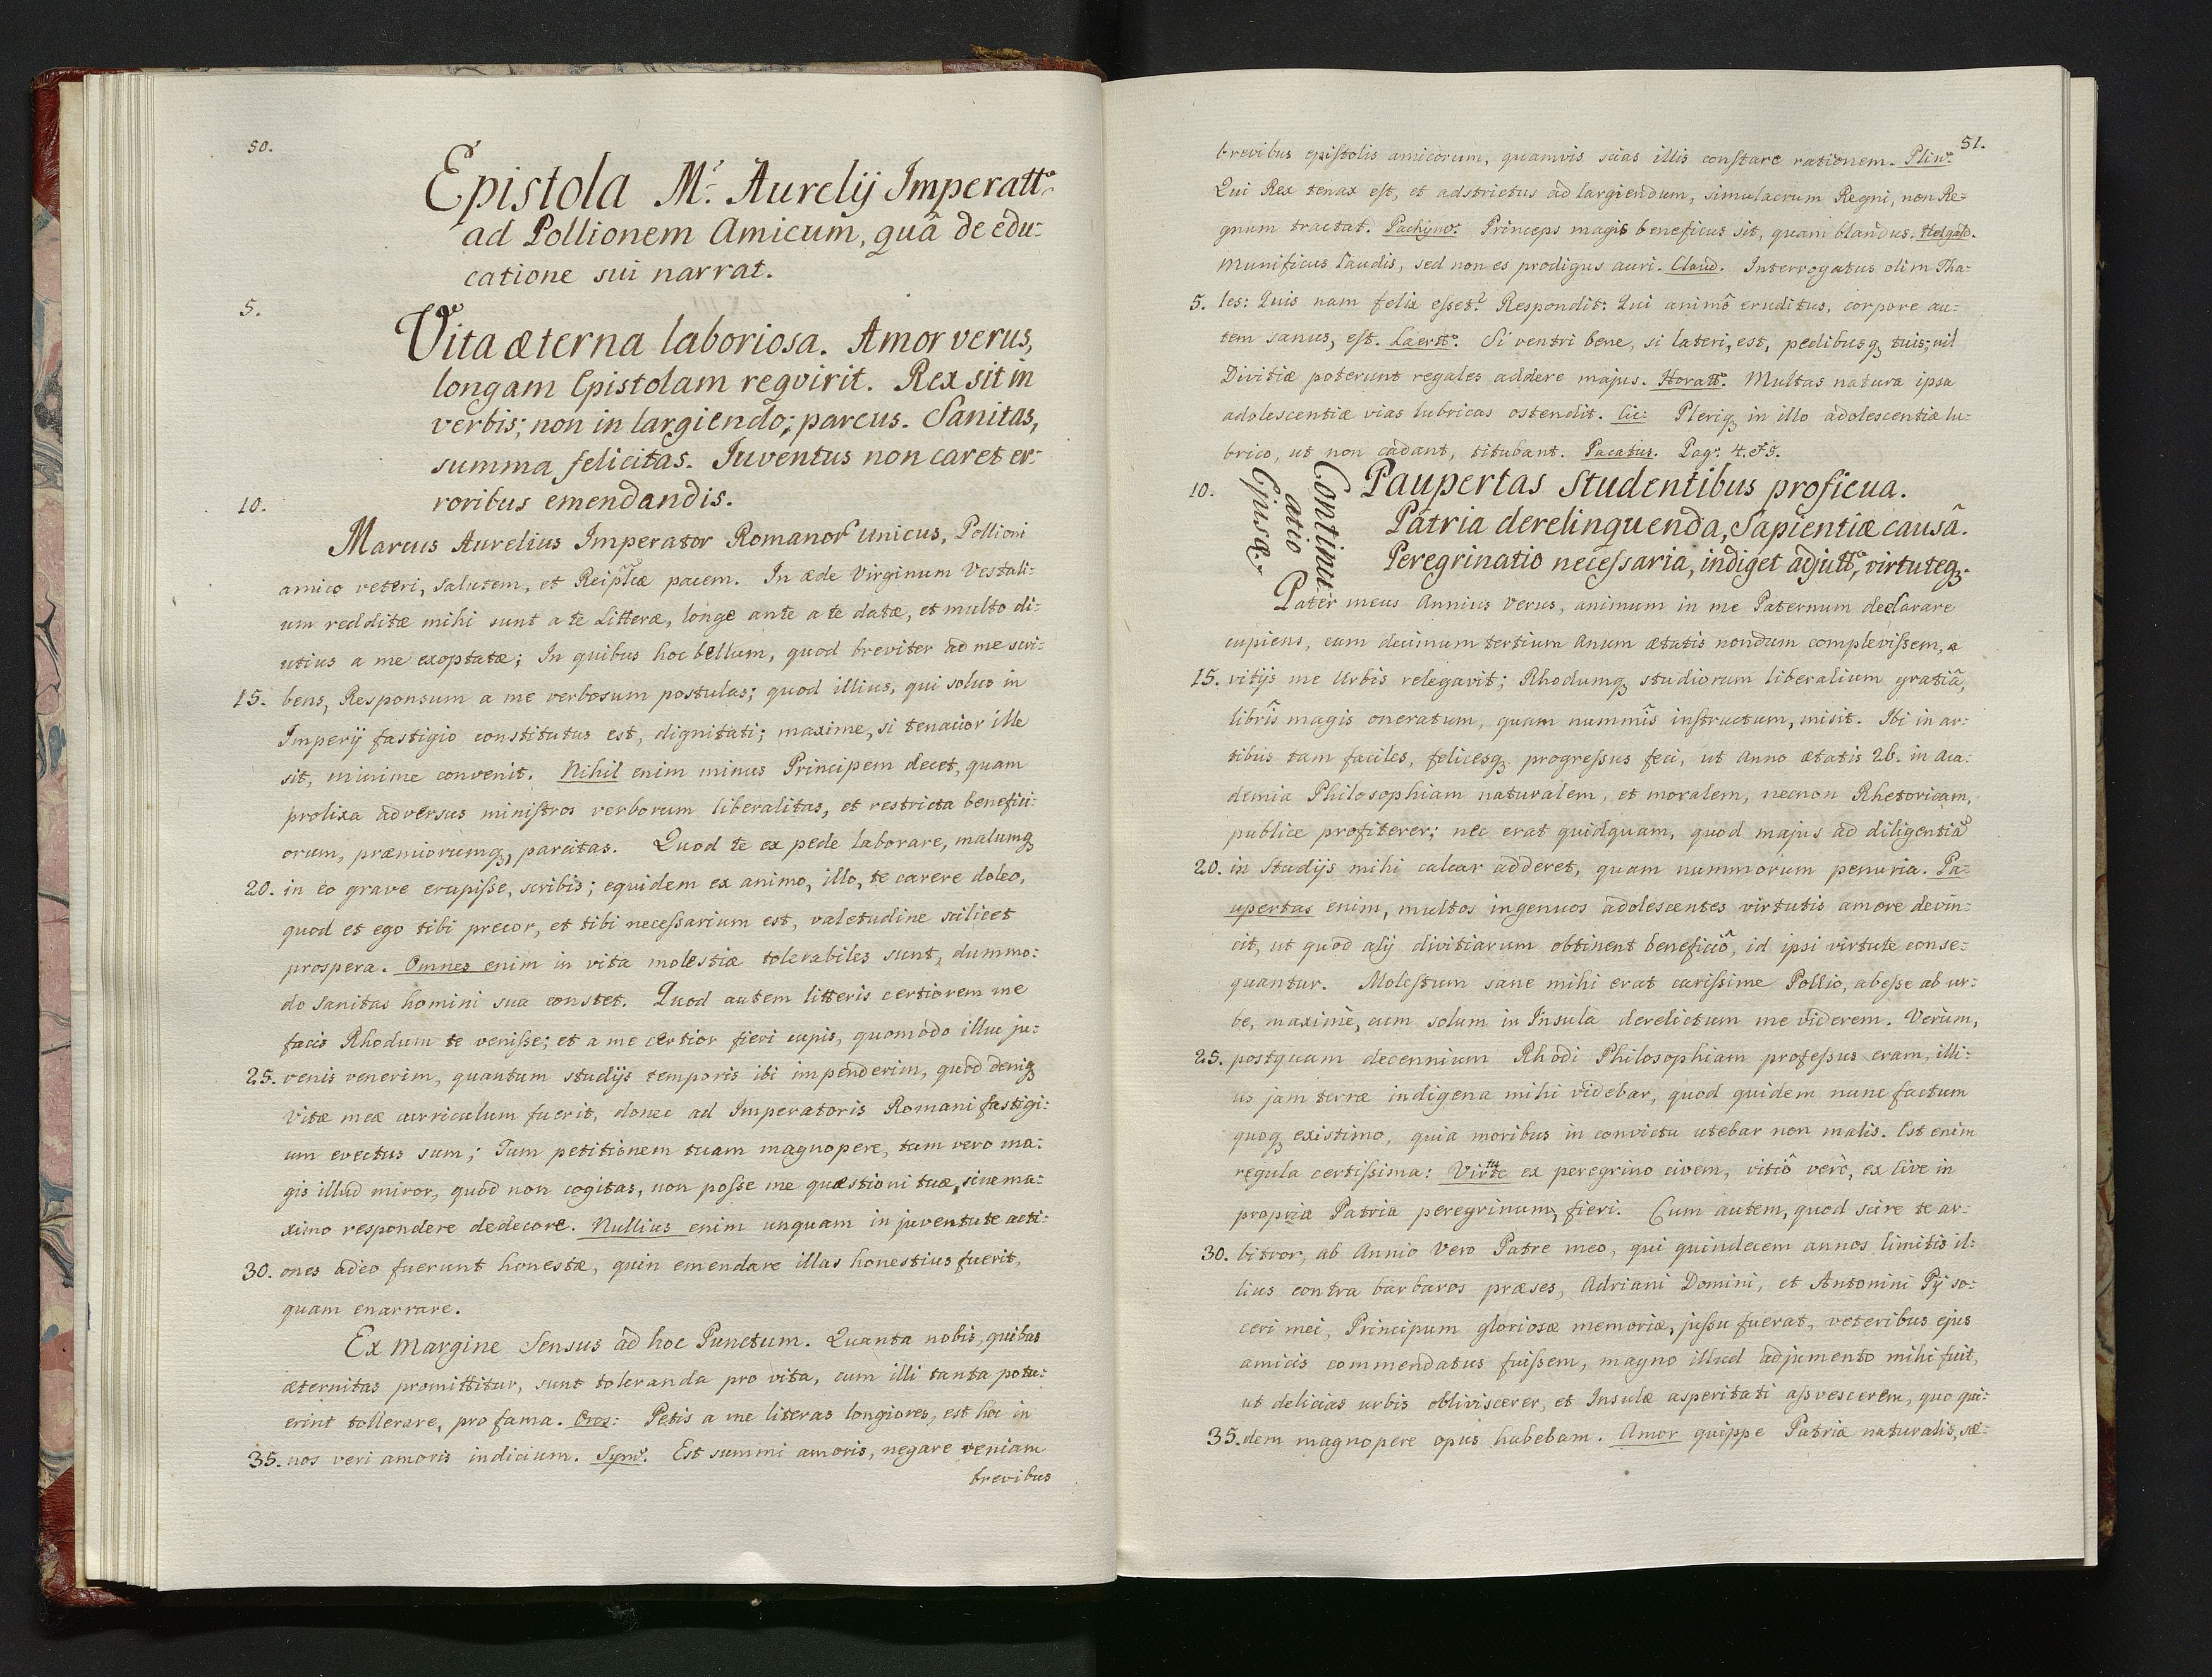 50.
Epistola M.r Aurelij Imperatt.
ad Pollionem Amicum, quâ de edu:
catione sui narrat.
5.
Vita æterna laboriosa. Amor verus,
longam Epistolam reqvirit. Rex sit in
verbis; non in largiendo; parcus. Sanitas,
summa felicitas. Juventus non caret er:
10. roribus emendandis.
Marcus Aurelius Imperator Romanor unicus, Pollioni
amico veteri, salutem, et Reiplcæ pacem. In æde Virginum Vestali:
um redditæ mihi sunt a te Litteræ, longe ante a te datæ, et multo di:
utius a me exoptatæ; In quibus hoc bellum, quod breviter ad me scri:
15. bens, Responsum a me verbosum postulas; quod illius, qui solus in
Imperij fastigio constitutus est, dignitati; maxime, si tenacior ille
sit, minime convenit. Nihil enim minus Principem decet, quam
prolixa adversus miniſtros verborum liberalitas, et restricta benefici:
orum, præmiorumq, parcitas. Quod te ex pede laborare, malumq
20. in eo grave erupiſse, scribis; equidem ex animo, illo, te carere doleo,
quod et ego tibi precor, et tibi neceſsarium est, valetudine scilicet
prospera. Omnes enim in vita molestiæ tolerabiles sunt, dummo:
do sanitas homini sua constet. Quod autem litteris certiorem me
facis Rhodum te veniſse; et a me certior fieri cupis, quomodo illuc ju:
25. venis venerim, quantum studijs temporis ibi impenderim, quod deniq
vitæ meæ curriculum fuerit, donec ad Imperatoris Romani fastigi:
um evectus sum; Tum petitionem tuam magnopere, tum vero ma:
gis illud miror, quod non cogitas, non poſse me quæstioni tuæ, sine ma:
ximo respondere dedecore. Nullius enim unquam in juventute acti:
30. ones adeo fuerunt honestæ, quin emendare illas honestius fuerit,
quam enarrare.
Ex Margine Sensus ad hoc Punctum. Quanta nobis, quibus
æternitas promittitur, sunt toleranda pro vita, cum illi tanta potu:
erint tollerare, pro fama. Oros: Petis a me literas longiores, est hoc in
35. nos veri amoris indicium. Sym. Est summi amoris, negare veniam
brevibus
51.
brevibus epiſtolis amicorum, quamvis scias illis conſtare rationem. Plin.
Qui Rex tenax eſt, et adstrictus ad largiendum, simulacrum Regni, non Re:
gnum tractat. Pachym. Princeps magis beneficus sit, quam blandus. Helgald.
Munificus laudis, sed non es prodigus auri. Claud. Interrogatus olim Tha:
5. les: Quis nam felix eſset? Respondit: Qui animô eruditus, corpore au:
tem sanus, eſt. Laertt. Si ventri bene, si lateri, est, pedibusq tuis; nil
Divitiæ poterunt regales addere majus. Horatt. Multas natura ipsa
adolescentiæ vias lubricas ostendit. Cic: Pleriq in illo adolescentiæ lu:
brico, ut non cadant, titubant. Pacatus. Pag. 4. & 5.
Continu
atio
Ejusd.
10. Paupertas Studentibus proficua.
Patria derelinquenda, Sapientiæ causâ.
Peregrinatio neceſsaria, indiget adjutt., virtuteq.
Pater meus Annius Verus, animum in me Paternum declarare
cupiens, cum decimum tertium Anum ætatis nondum compleviſsem, a
15. vitijs me Urbis relegavit; Rhodumq studiorum liberalium gratiâ,
librîs magis oneratum, quam nummîs inſtructum, misit. Ibi in ar:
tibus tam faciles, felicesq progreſsus feci, ut Anno ætatis 26. in Aca:
demia Philosophiam naturalem, et moralem, necnon Rhetoricam,
publice profiterer; nec erat quidquam, quod majus ad diligentiã
20. in Studijs mihi calcar adderet, quam nummorum penuria. Pa:
upertas enim, multos ingenuos adolescentes virtutis amore devin:
cit, ut quod alij divitiarum obtinent beneficiô, id ipsi virtute conse:
quantur. Moleſtum sane mihi erat cariſsime Pollio, abeſse ab ur:
be, maximè, cum solum in Insula derelictum me viderem. Verùm,
25. postquam decennium Rhodi Philosophiam profeſsus eram, illi:
us jam terræ indigena mihi videbar, quod quidem nunc factum
quoq existimo, quia moribus in convictu utebar non malis. Est enim
regula certiſsima: Virtute ex peregrino civem, vitiô verò, ex Cive in
propria Patria peregrinum, fieri. Cum autem, quod scire te ar:
30. bitror, ab Annio Vero Patre meo, qui quindecem annos limitis il:
lius contra barbaros præses, Adriani Domini, et Antonini Pij so:
ceri mei, Principum gloriosæ memoriæ, juſsu fuerat, veteribus ejus
amicis commendatus fuiſsem, magno illud adjumento mihi fuit,
ut delicias urbis obliviscerer, et Insulæ asperitati aſsvescerem, quo qui:
35. dem magnopere opus habebam. Amor quippe Patriæ naturalis, sæ: